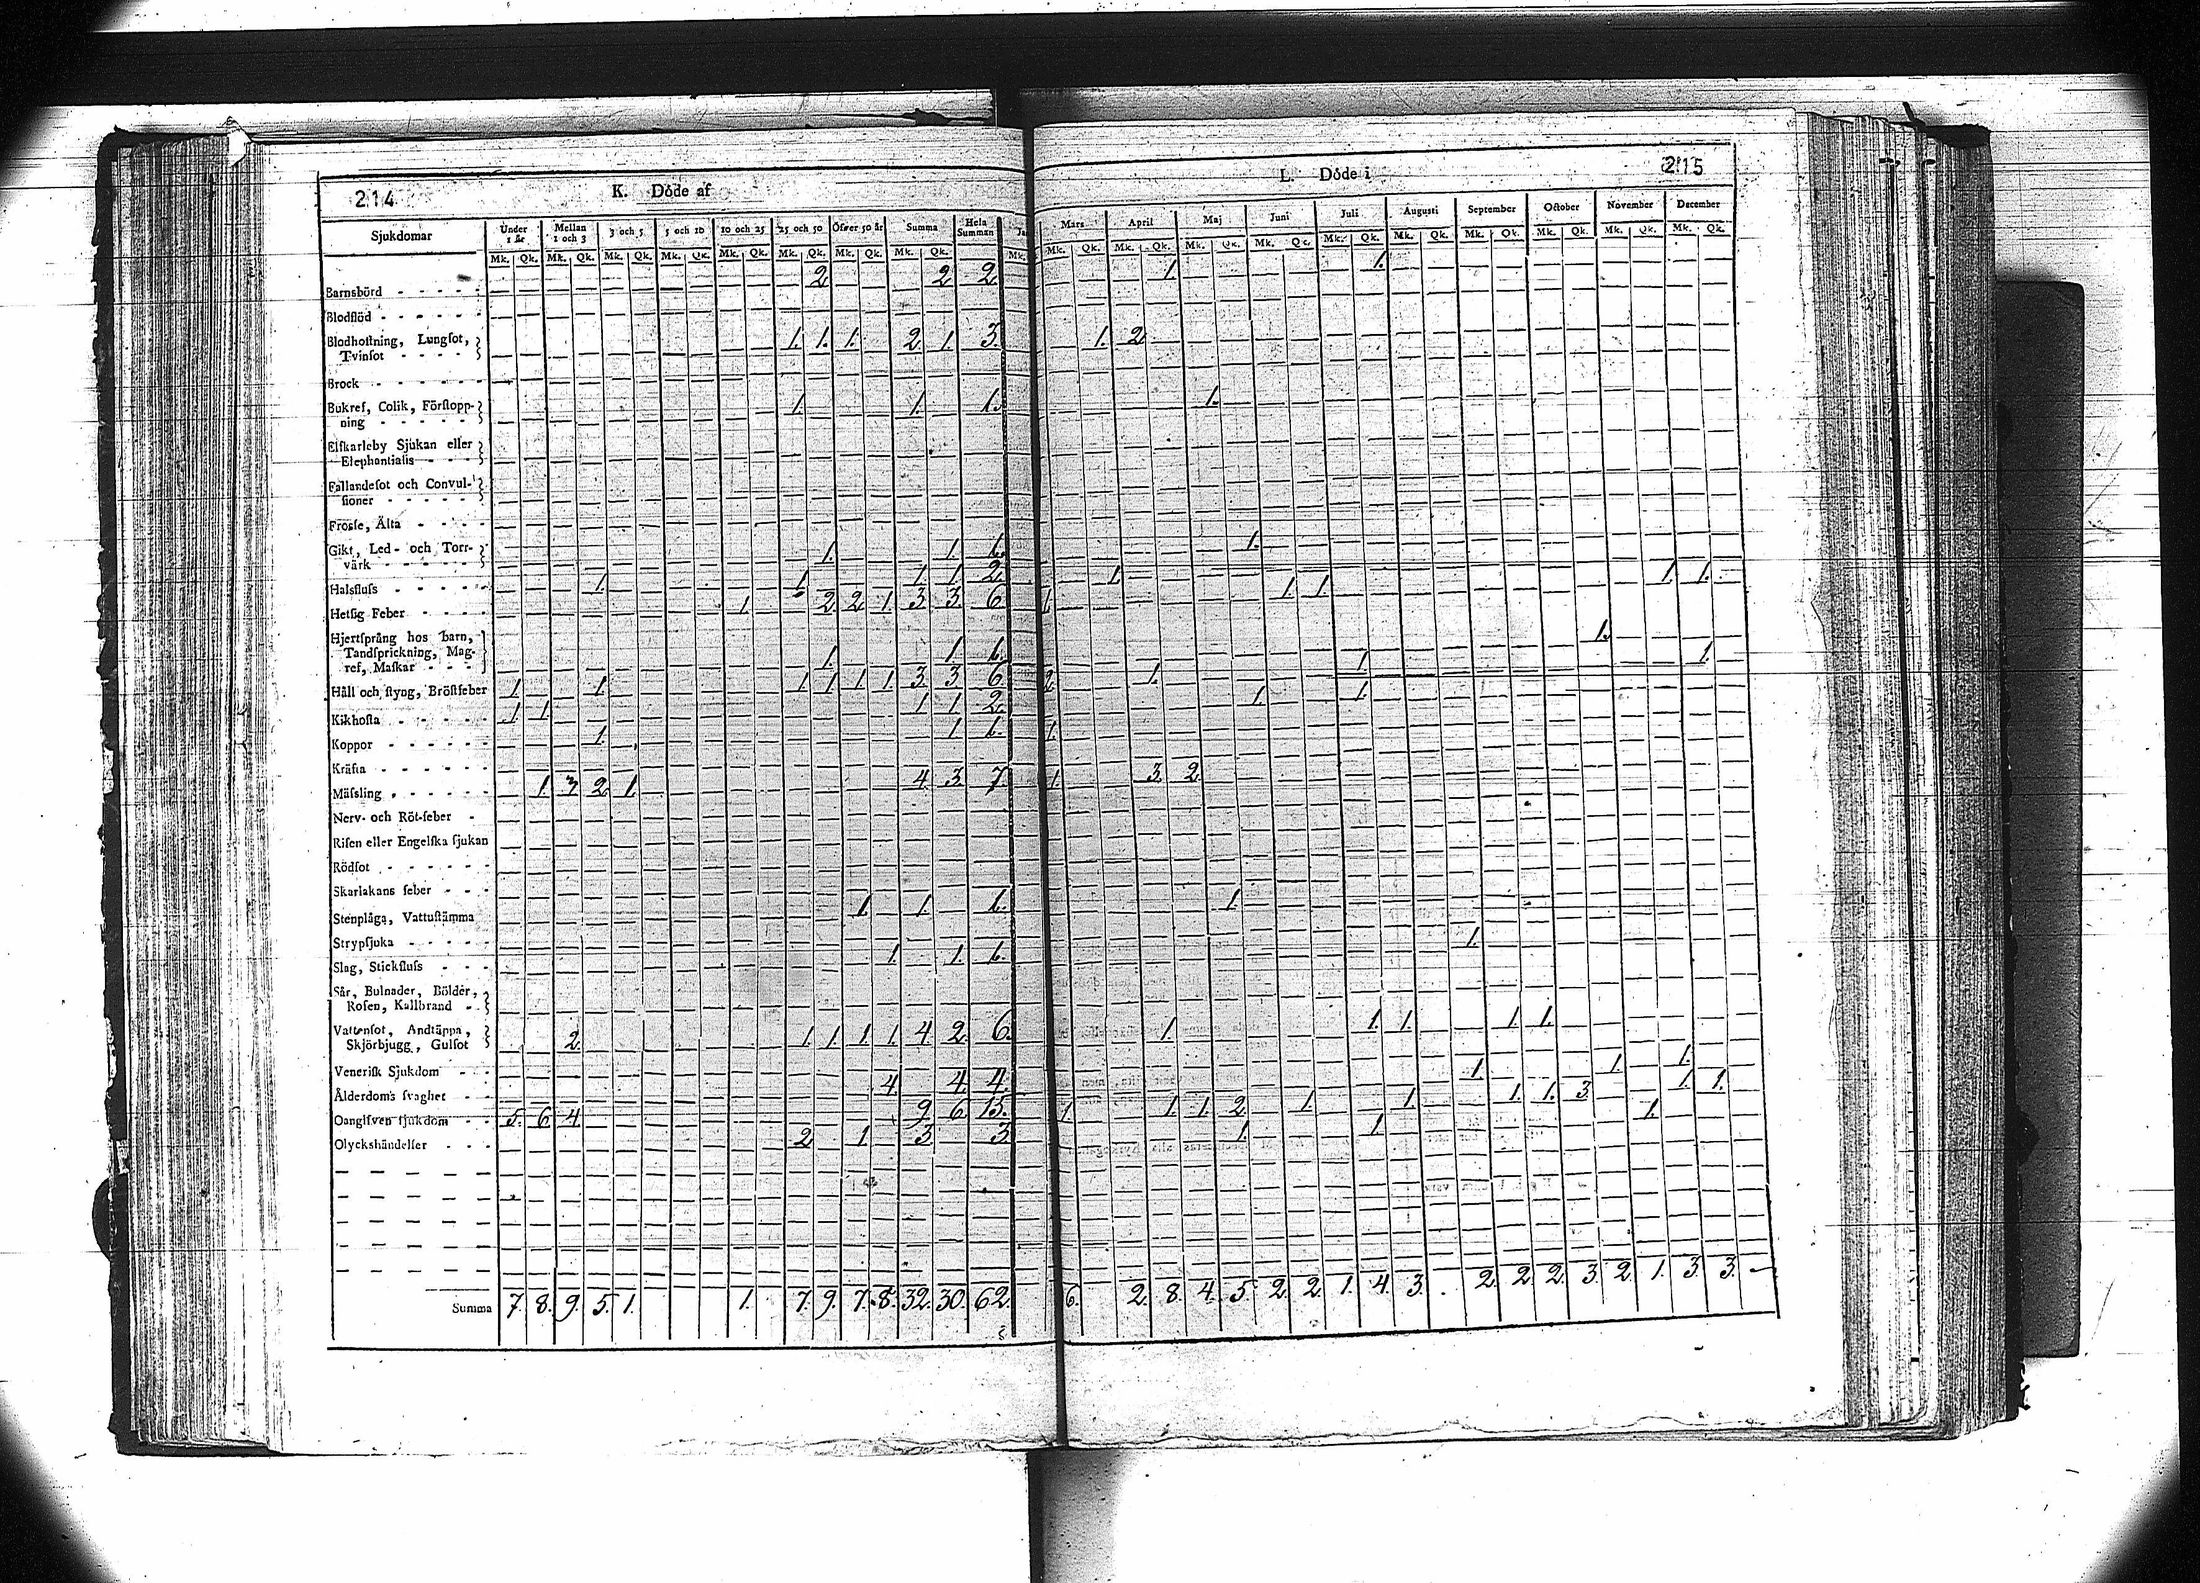 214 K. Döde af
Sjukdomar Under 1 år Mellan 1 och 3 3 och 5 5 och 10 10 och 25 25 och 50 Öfver 50 år Summa Hela Summan
Mk. Qk. Mk. Qk. Mk. Qk. Mk. Qk. Mk. Qk. Mk. Qk. Mk. Qk. Mk. Qk.
Barnsbörd 2 2 2
Blodflöd
Blodhostning, Lungsot,
Tvinsot 1. 1. 1. 2. 1. 3.
Brock
Bukref, Colik, Förstopp-
ning 1. 1. 1.
Elfkarleby Sjukan eller
Elephantiasis
Fallandesot och Convul-
sioner
Frossa, Älta
Gikt, Led- och Torr-
värk 1. 1. 1.
Halsfluss 1. 1. 1. 1. 2.
Hetsig Feber 1. 2. 2. 1. 3. 3. 6
Hjertsprång hos barn,
Tandsprickning, Mag-
ref, Maskar 1. 1. 1.
Håll och styng, Bröstfeber 1. 1. 1. 1. 1. 1. 3. 3. 6
Kikhosta 1. 1. 1. 1. 2.
Koppor 1. 1. 1.
Kräfta
Mässling 1. 3. 2. 1. 4. 3. 7.
Nerv- och Röt-feber
Risen eller Engelska sjukan
Rödsot
Skarlakans feber
Stenplåga, Vattustämma 1. 1. 1.
Strypsjuka
Slag, Stickfluss 1. 1. 1.
Sår, Bulnader, Bölder,
Rosen, Kallbrand
Vattensot, Andtäppa,
Skjörbjugg, Gulsot 2. 1. 1. 1. 1. 4. 2. 6.
Venerisk Sjukdom
Ålderdoms svaghet 4. 4. 4.
Oangifven sjukdom 5. 6. 4. 9. 6. 15.
Olyckshändelser 2. 1. 3. 3
Summa 7. 8. 9. 5. 1. 1. 7. 9. 7. 8. 32. 30. 62.
L. Döde i 215
Mars April Maj Juni Juli Augusti September October November December
Mk. Qk. Mk. Qk. Mk. Qk. Mk. Qk. Mk. Qk. Mk. Qk. Mk. Qk. Mk. Qk. Mk. Qk. Mk. Qk.
1. 1.
1. 2.
1.
1.
1. 1. 1.
1. 1. 1.
1.
1. 1.
2. 1.
1. 1.
1.
1. 3. 2.
1.
1.
1. 1. 1. 1. 1.
1. 1. 1.
1. 1. 3. 1. 1.
1. 1. 1. 2. 1. 1. 1.
1. 1.
6. 2. 8. 4. 5. 2. 2. 1. 4. 3. 2. 2. 2. 3. 2. 1. 3. 3.